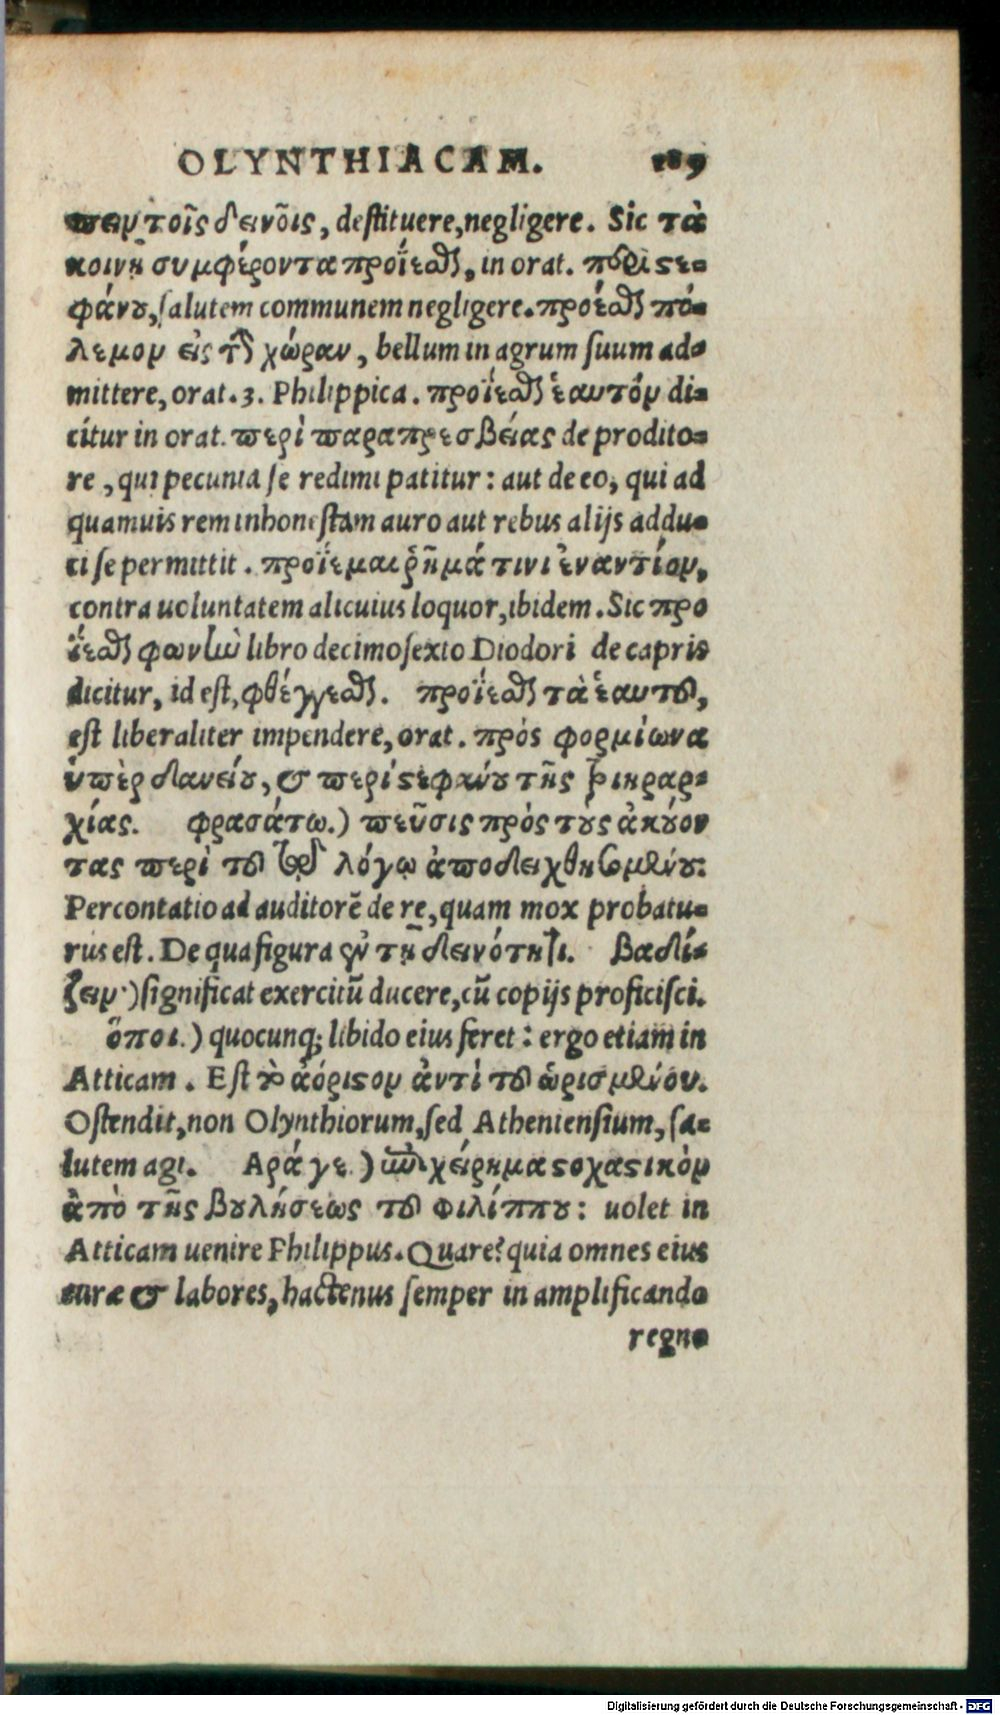 OLYNTHIACAM. 189
πειν τοῖς δεινοῖς, destituere, negligere. Sic τὰ
κοινῇ συμφέροντα προΐεσθαι, in orat. περὶ στε-
φάνου, salutem communem negligere. προέσθαι πό-
λεμον εἰς τὴν χώραν, bellum in agrum suum ad-
mittere, orat. 3. Philippica. προΐεσθαι ἑαυτὸν di-
citur in orat. περὶ παραπρεσβείας de prodito-
re, qui pecunia se redimi patitur: aut de eo, qui ad
quamuis rem inhonestam auro aut rebus alijs addu-
ci se permittit. προΐεμαι ῥῆμά τινι ἐναντίον,
contra uoluntatem alicuius loquor, ibidem. Sic προ
ΐεσθαι φωνὴν libro decimosexto Diodori de capris
dicitur, id est, φθέγγεσθαι. προΐεσθαι τὰ ἑαυτοῦ,
est liberaliter impendere, orat. πρὸς φορμίωνα
ὑπὲρ δανείου, & περὶ στεφάνου τῆς τριηραρ-
χίας. φρασάτω.) πεῦσις πρὸς τοὺς ἀκούον
τας περὶ τοῦ τῷ λόγῳ ἀποδειχθησομένου:
Percontatio ad auditorē de re, quam mox probatu-
rus est. De qua figura ἐν τῇ δεινότητι. βαδί-
ζειν) significat exercitū ducere, cū copijs proficisci.
ὅποι.) quocunq; libido eius feret: ergo etiam in
Atticam. Est τὸ ἀόριστον ἀντὶ τοῦ ὡρισμένου.
Ostendit, non Olynthiorum, sed Atheniensium, sa-
lutem agi. Αρά γε.) ἐπιχείρημα στοχαστικὸν
ἀπὸ τῆς βουλήσεως τοῦ φιλίππου: uolet in
Atticam uenire Philippus. Quare? quia omnes eius
curæ & labores, hactenus semper in amplificando
regno
Digitalisierung gefördert durch die Deutsche Forschungsgemeinschaft - DFG